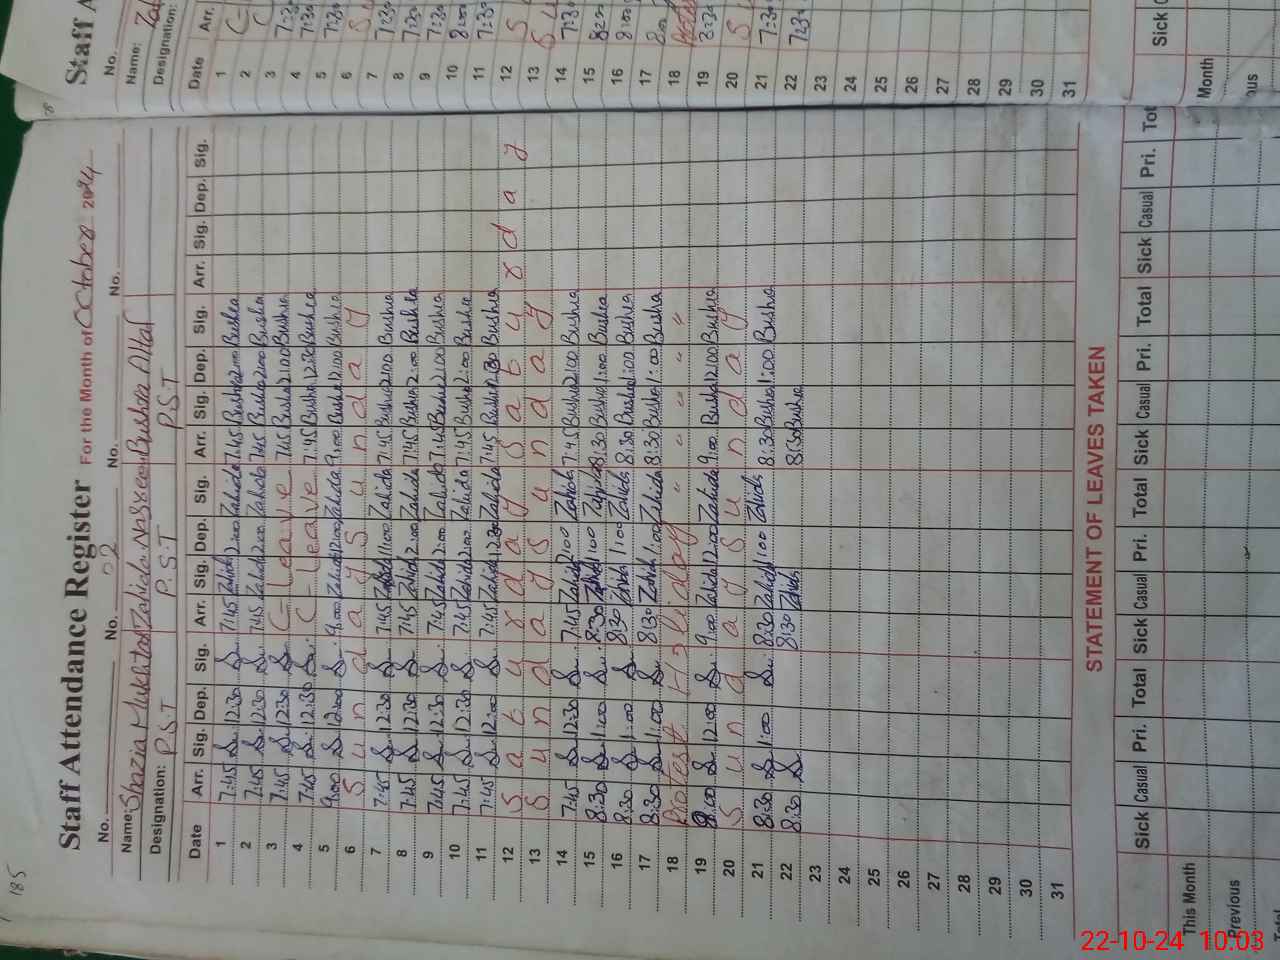 185
Staff Attendance Register For the Month of October 2024
No. No. 02 No. No.
Name: Shazia Mukhtar Zahida Nasreen Bushra Altaf
Designation: P.S.T P.S.T P.S.T
Date Arr. Sig. Dep. Sig. Arr. Sig. Dep. Sig. Arr. Sig. Dep. Sig. Arr. Sig. Dep. Sig.
1 7:45 12:30 7:45 Zahida 2:00 Zahida 7:45 Bushra 2:00 Bushra
2 7:45 12:30 7:45 Zahida 2:00 Zahida 7:45 Bushra 2:00 Bushra
3 7:45 12:30 C- Leave 7:45 Bushra 2:00 Bushra
4 7:45 12:30 C- Leave 7:45 Bushra 12:30 Bushra
5 9:00 12:00 9:00 Zahida 12:00 Zahida 9:00 Bushra 12:00 Bushra
6 Sunday Sunday
7 7:45 12:30 7:45 Zahida 1:00 Zahida 7:45 Bushra 2:00 Bushra
8 7:45 12:30 7:45 Zahida 2:00 Zahida 7:45 Bushra 2:00 Bushra
9 7:45 12:30 7:45 Zahida 2:00 Zahida 7:45 Bushra 2:00 Bushra
10 7:45 12:30 7:45 Zahida 2:00 Zahida 7:45 Bushra 2:00 Bushra
11 7:45 12:00 7:45 Zahida 12:30 Zahida 7:45 Bushra Bushra
12 Saturday Saturday
13 Sunday Sunday
14 7:45 12:30 7:45 Zahida 2:00 Zahida 7:45 Bushra 2:00 Bushra
15 8:30 1:00 8:30 Zahida 1:00 Zahida 8:30 Bushra 1:00 Bushra
16 8:30 1:00 8:30 Zahida 1:00 Zahida 8:30 Bushra 1:00 Bushra
17 8:30 1:00 8:30 Zahida 1:00 Zahida 8:30 Bushra 1:00 Bushra
18 Protest Holiday " " " " "
19 9:00 12:00 9:00 Zahida 12:00 Zahida 9:00 Bushra 12:00 Bushra
20 Sunday Sunday
21 8:30 1:00 8:30 Zahida 1:00 Zahida 8:30 Bushra 1:00 Bushra
22 8:30 8:30 Zahida 8:30 Bushra
23
24
25
26
27
28
29
30
31
STATEMENT OF LEAVES TAKEN
Sick Casual Pri. Total Sick Casual Pri. Total Sick Casual Pri. Total Sick Casual Pri. Tot
This Month
Previous
Total
Staff A
No.
Name:
Designation:
Date Arr.
1 C-
2 C
3 7:30
4 7:30
5 7:30
6 S
7 7:30
8 7:30
9 7:30
10 8:00
11 7:30
12 S
13 S
14 7:30
15
16 8:00
17 8:00
18
19 8:30
20 S
21 7:30
22 7:30
23
24
25
26
27
28
29
30
31
Sick C
Month
ous
22-10-24 10:03